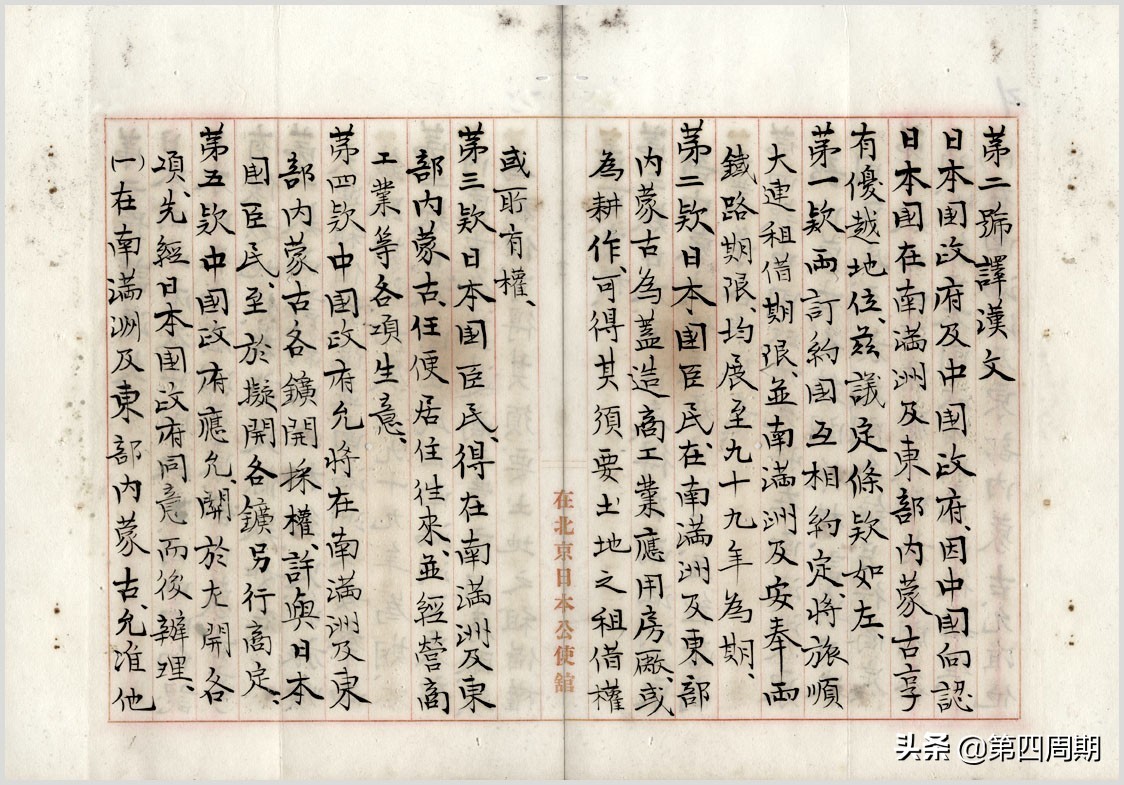 第二號譯漢文
日本國政府及中國政府、因中國向認
日本國在南滿洲及東部內蒙古享
有優越地位、茲議定條欵如左、
第一欵両訂約國互相約定、將旅順
大連租借期限、並南滿洲及安奉両
鐵路期限、均展至九十九年為期、
第二欵日本國臣民、在南滿洲及東部
內蒙古為蓋造商工業應用房厰、或
為耕作、可得其須要土地之租借權
或所有權、
第三欵日本國臣民、得在南滿洲及東
部內蒙古、任便居住往來、並經營商
工業等各項生意、
第四欵中國政府允將在南滿洲及東
部內蒙古各鑛開採權、許與日本
國臣民、至於擬開各鑛另行商定、
第五欵中國政府應允、關於左開各
項、先經日本國政府同意而後辦理、
(一)在南滿洲及東部內蒙古、允准他
在北京日本公使舘
头条 @第四周期